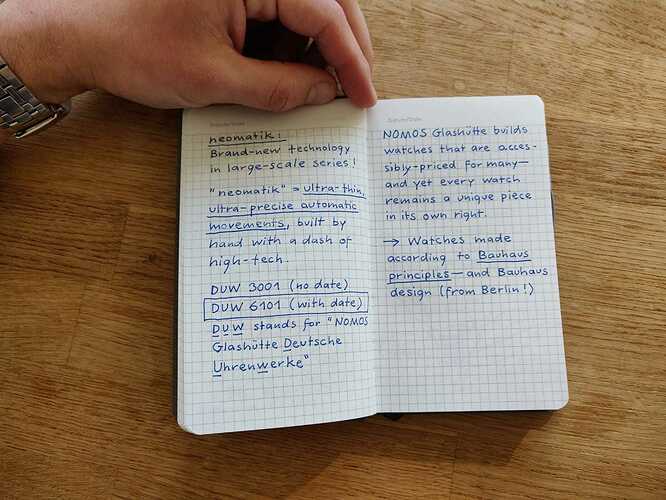 neomatik:
Brand-new technology
in large-scale series!
"neomatik" = ultra-thin,
ultra-precise automatic
movements, built by
hand with a dash of
high-tech.
DUW 3001 (no date)
DUW 6101 (with date)
DUW stands for "NOMOS
Glashütte Deutsche
Uhrenwerke"
Datum/Date
NOMOS Glashütte builds
watches that are acces-
sibly-priced for many—
and yet every watch
remains a unique piece
in its own right.
→ Watches made
according to Bauhaus
principles—and Bauhaus
design (from Berlin!)